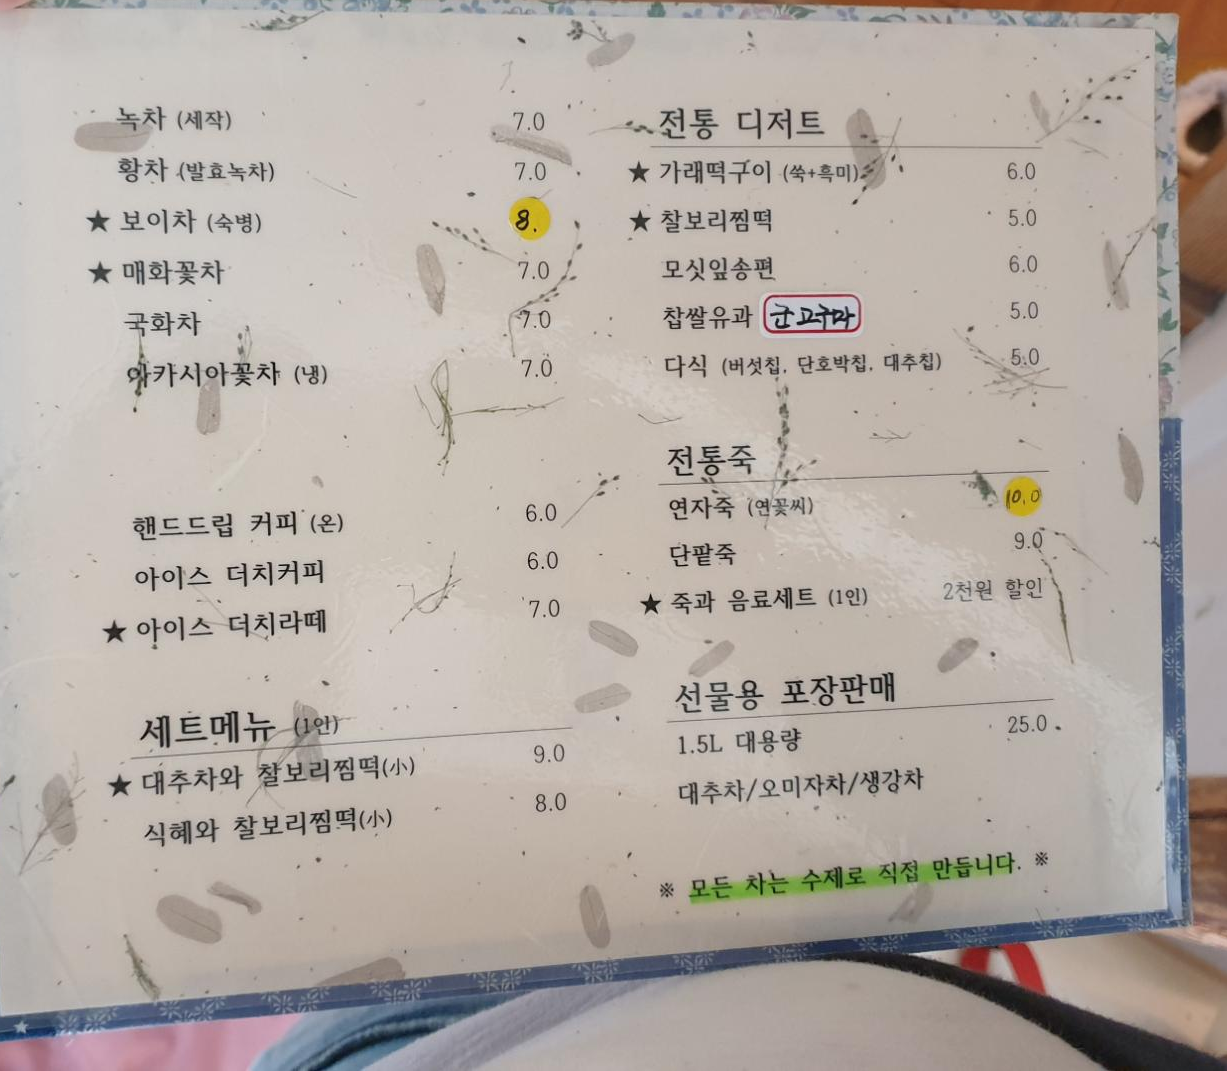 녹차 (세작) 7.0
황차 (발효녹차) 7.0
★ 보이차 (숙병) 8.
★ 매화꽃차 7.0
국화차 7.0
아카시아꽃차 (냉) 7.0
핸드드립 커피 (온) 6.0
아이스 더치커피 6.0
★ 아이스 더치라떼 7.0
세트메뉴 (1인)
★ 대추차와 찰보리찜떡(小) 9.0
식혜와 찰보리찜떡(小) 8.0
전통 디저트
★ 가래떡구이 (쑥+흑미) 6.0
★ 찰보리찜떡 5.0
모싯잎송편 6.0
찹쌀유과 군고구마 5.0
다식 (버섯칩, 단호박칩, 대추칩) 5.0
전통죽
연자죽 (연꽃씨) 10.0
단팥죽 9.0
★ 죽과 음료세트 (1인) 2천원 할인
선물용 포장판매
1.5L 대용량 25.0
대추차/오미자차/생강차
※ 모든 차는 수제로 직접 만듭니다. ※